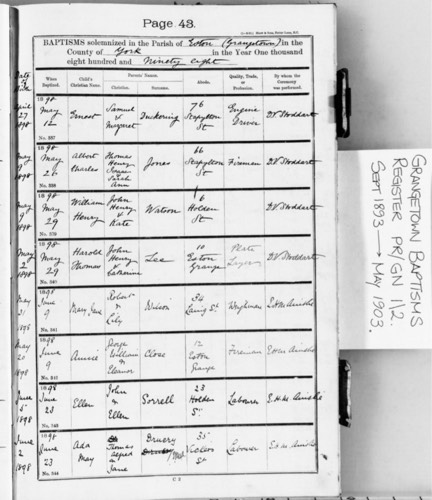 Page. 43.
BAPTISMS solemnized in the Parish of Eston (Grangetown) in the
County of York in the Year One thousand
eight hundred and Ninety eight
When Baptized. Child's Christian Name. Parents' Names. Christian. Surname. Abode. Quality, Trade, or Profession. By whom the Ceremony was performed.
April 27 1898 1898 May 12 No. 537 Ernest Samuel & Margaret Duckering 76 Stapylton St Engine Driver D.V. Stoddart
May 1898 1898 May 26 No. 538 Albert Charles Thomas Henry Sarah Ann Jones 66 Stapylton St Fireman D.V. Stoddart
May 9 1898 1898 May 29 No. 539 William Henry John Henry & Kate Watson 6 Holden St D.V. Stoddart
May 2 1898 1898 May 29 No. 540 Harold Thomas John Henry & Catherine Lee 10 Eston Grange Plate Layer D.V. Stoddart
May 31 1898 1898 June 9 No. 541 Mary Jane Robert & Lily Wilson 34 Laing St Weighman
May 20 1898 1898 June 9 No. 542 Annie George William & Eleanor Close 12 Eston Grange Fireman
June 5 1898 1898 June 23 No. 543 Ellen John & Ellen Sorrell 23 Holden St Labourer
June 2 1898 1898 June 23 No. 544 Ada May Thomas Alfred & Jane Druery 35 Vickers St Labourer
C 2
GRANGETOWN BAPTISMS
REGISTER PR/GN 1/2.
SEPT 1893 → MAY 1903.